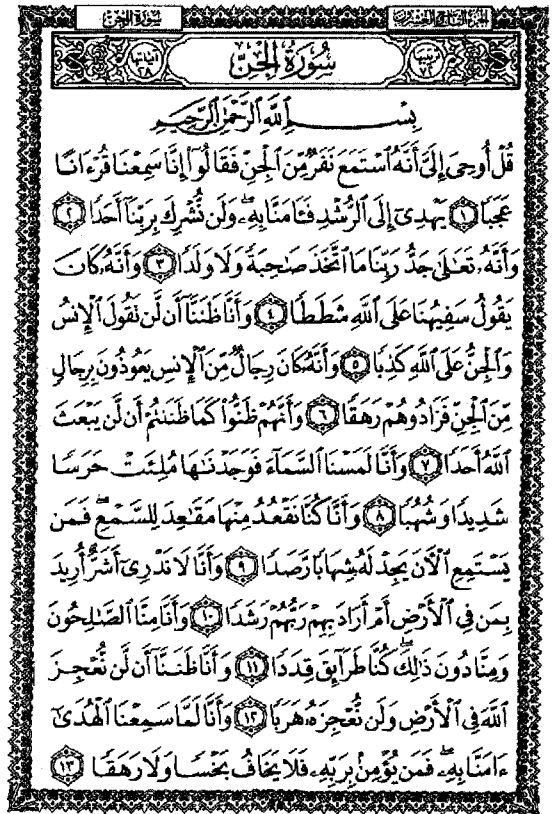 سُورَةُ الجِنّ الجُزْءُ التَّاسِعُ وَالعِشْرُون
ترتيبها ٧٢ سُورَةُ الجِنِّ آياتها ٢٨
بِسْمِ ٱللَّهِ ٱلرَّحْمَٰنِ ٱلرَّحِيمِ
قُلْ أُوحِىَ إِلَىَّ أَنَّهُ ٱسْتَمَعَ نَفَرٌ مِّنَ ٱلْجِنِّ فَقَالُوٓا۟ إِنَّا سَمِعْنَا قُرْءَانًا
عَجَبًا ١ يَهْدِىٓ إِلَى ٱلرُّشْدِ فَـَٔامَنَّا بِهِۦ ۖ وَلَن نُّشْرِكَ بِرَبِّنَآ أَحَدًا ٢
وَأَنَّهُۥ تَعَٰلَىٰ جَدُّ رَبِّنَا مَا ٱتَّخَذَ صَٰحِبَةً وَلَا وَلَدًا ٣ وَأَنَّهُۥ كَانَ
يَقُولُ سَفِيهُنَا عَلَى ٱللَّهِ شَطَطًا ٤ وَأَنَّا ظَنَنَّآ أَن لَّن تَقُولَ ٱلْإِنسُ
وَٱلْجِنُّ عَلَى ٱللَّهِ كَذِبًا ٥ وَأَنَّهُۥ كَانَ رِجَالٌ مِّنَ ٱلْإِنسِ يَعُوذُونَ بِرِجَالٍ
مِّنَ ٱلْجِنِّ فَزَادُوهُمْ رَهَقًا ٦ وَأَنَّهُمْ ظَنُّوا۟ كَمَا ظَنَنتُمْ أَن لَّن يَبْعَثَ
ٱللَّهُ أَحَدًا ٧ وَأَنَّا لَمَسْنَا ٱلسَّمَآءَ فَوَجَدْنَٰهَا مُلِئَتْ حَرَسًا
شَدِيدًا وَشُهُبًا ٨ وَأَنَّا كُنَّا نَقْعُدُ مِنْهَا مَقَٰعِدَ لِلسَّمْعِ ۖ فَمَن
يَسْتَمِعِ ٱلْـَٔانَ يَجِدْ لَهُۥ شِهَابًا رَّصَدًا ٩ وَأَنَّا لَا نَدْرِىٓ أَشَرٌّ أُرِيدَ
بِمَن فِى ٱلْأَرْضِ أَمْ أَرَادَ بِهِمْ رَبُّهُمْ رَشَدًا ١٠ وَأَنَّا مِنَّا ٱلصَّٰلِحُونَ
وَمِنَّا دُونَ ذَٰلِكَ ۖ كُنَّا طَرَآئِقَ قِدَدًا ١١ وَأَنَّا ظَنَنَّآ أَن لَّن نُّعْجِزَ
ٱللَّهَ فِى ٱلْأَرْضِ وَلَن نُّعْجِزَهُۥ هَرَبًا ١٢ وَأَنَّا لَمَّا سَمِعْنَا ٱلْهُدَىٰٓ
ءَامَنَّا بِهِۦ ۖ فَمَن يُؤْمِنۢ بِرَبِّهِۦ فَلَا يَخَافُ بَخْسًا وَلَا رَهَقًا ١٣